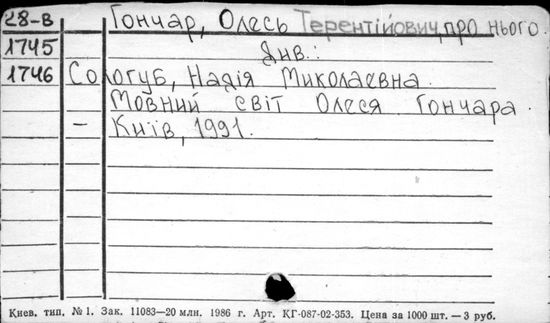 28-В Гончар, Олесь Терентійович, про нього.
1745 Див.:
1746 Сологуб, Надія Миколаєвна.
Мовний світ Олеся Гончара
– Київ, 1991.
Киев. тип. № 1. Зак. 11083—20 млн. 1986 г. Арт. КГ-087-02-353. Цена за 1000 шт. — 3 руб.